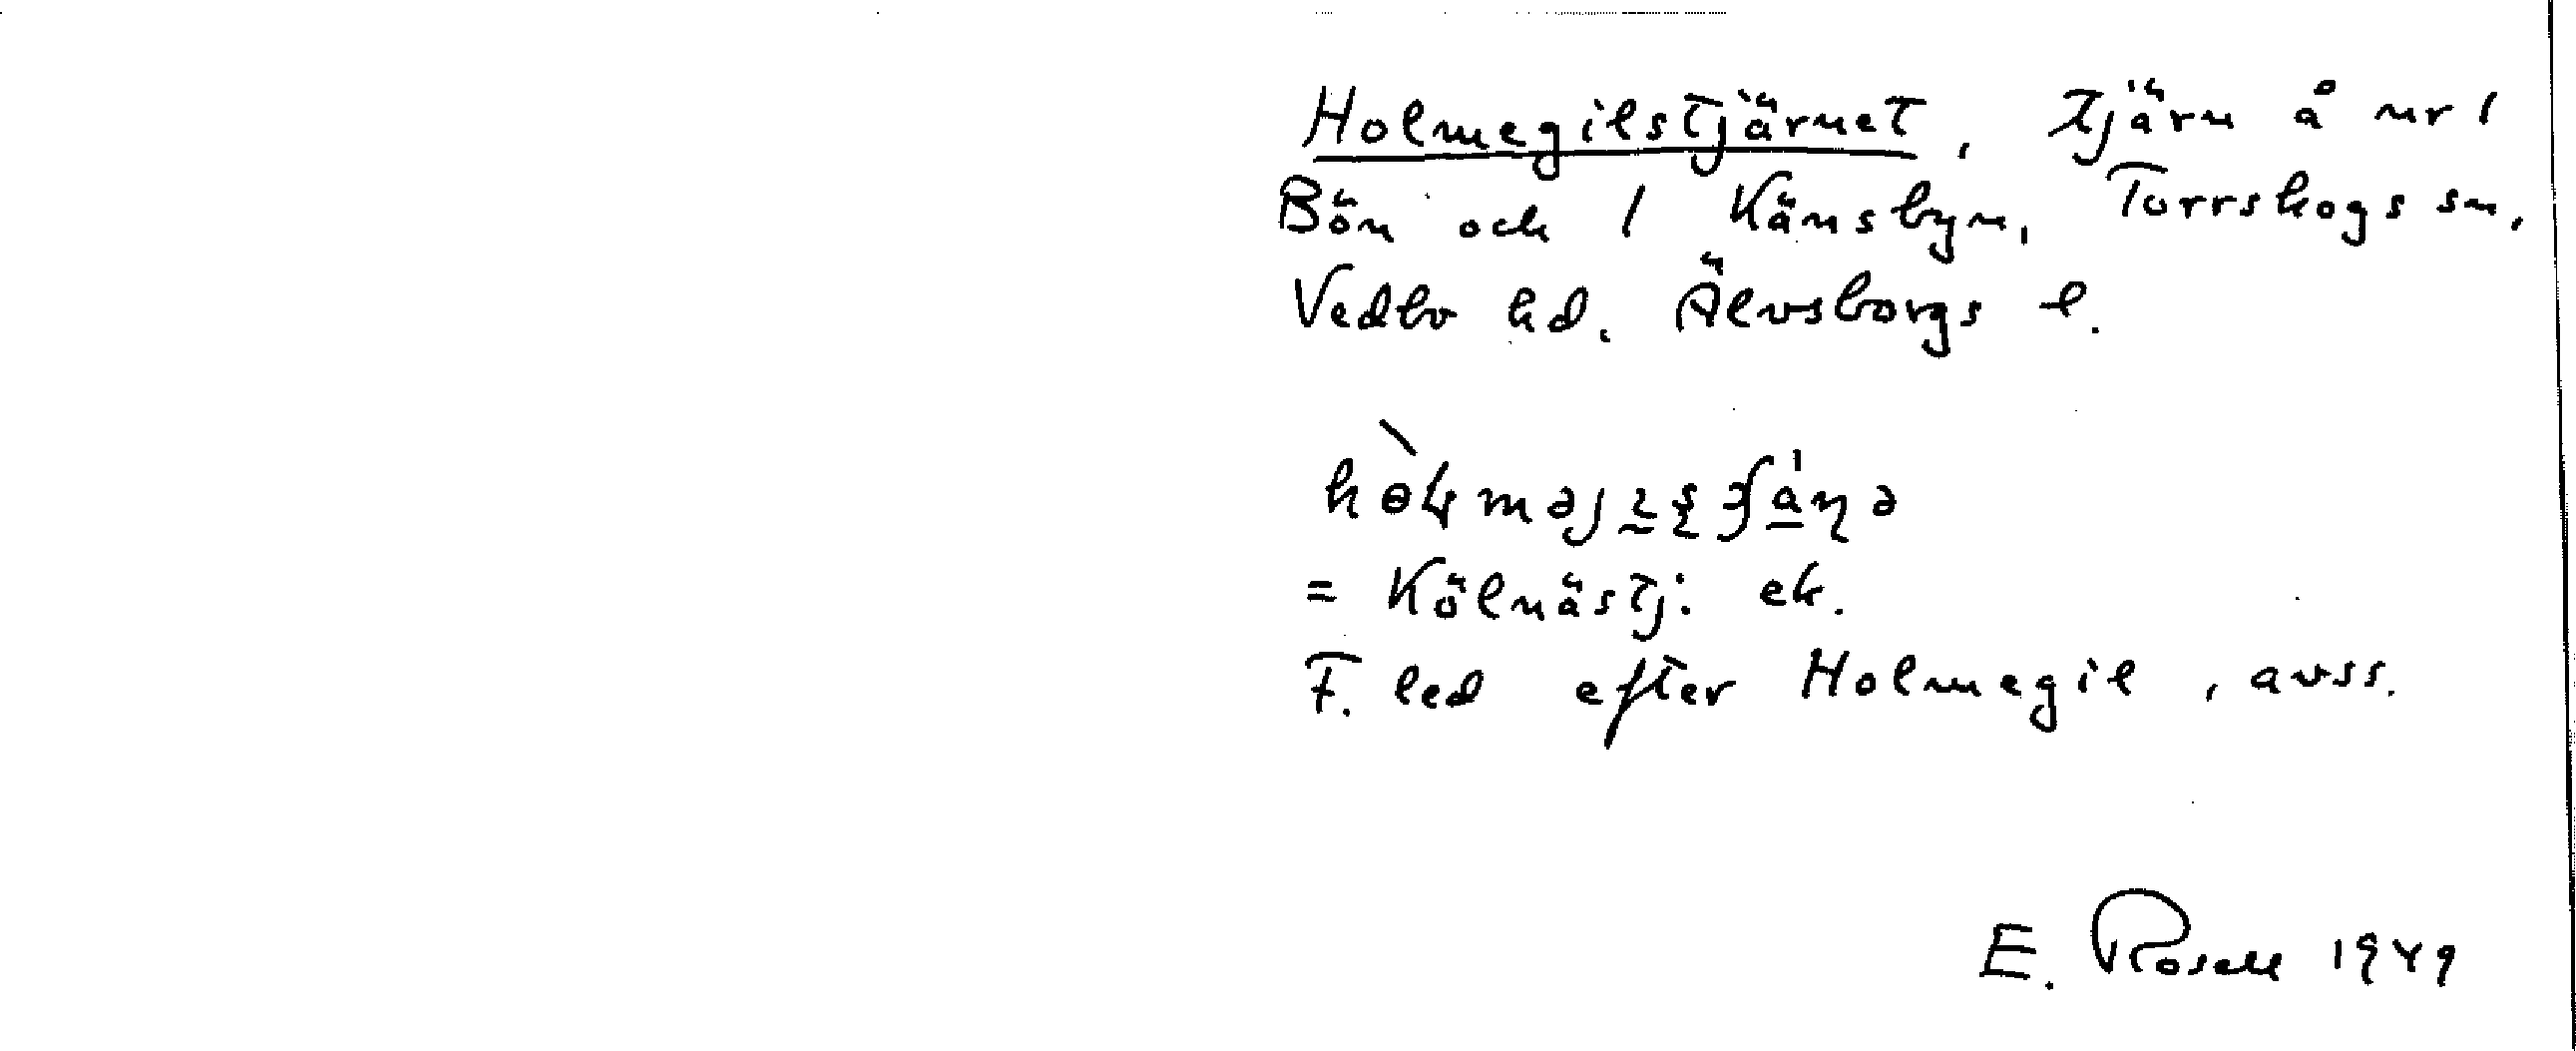 Holmegilstjärnet, tjärn å nr 1
Bön och 1 Känsbyn, Torrskogs sn,
Vedbo hd. Älvsborgs l.
= Kölnästj: ek.
F. led efter Holmegil, avss.
E. Rosell 1949